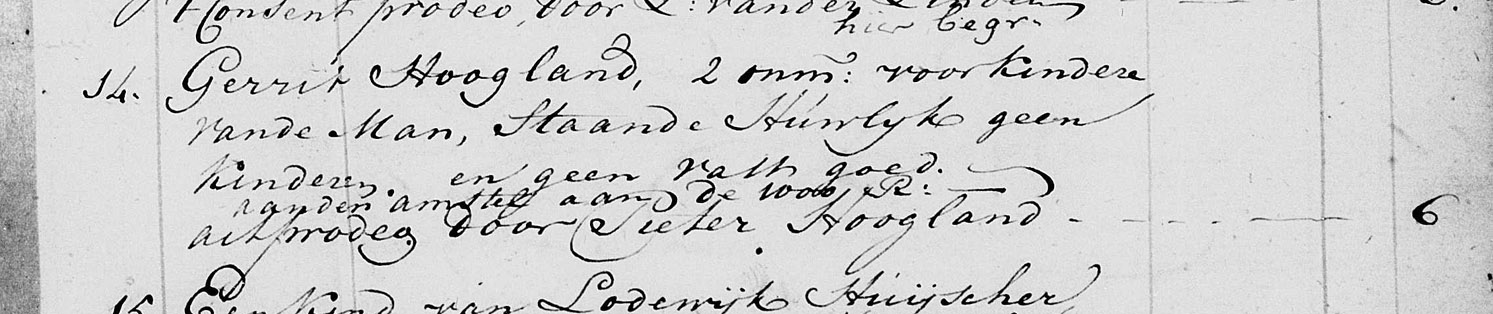 Consent prodeo, door L: vander Linden
hier begrn
14. Gerrit Hoogland, 2 onm: voor kindere
vande Man, Staande Húwlyk geen
kinderen. en geen vast goed.
aanden amstel aan de R:
act prodeo door Pieter Hoogland - - - - 6
15 Een Kind van Lodewijk Huijscher